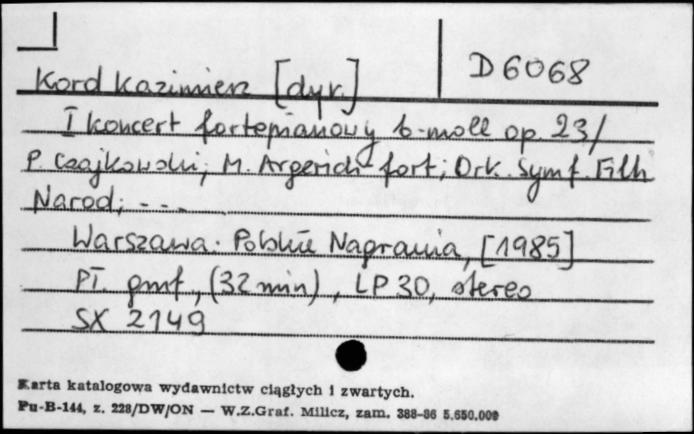 D 6068
Kord Kazimierz [dyr.]
I koncert fortepianowy b-moll op. 23 /
P. Czajkowski; M. Argerich - fort; Ork. Symf. Filh
Narod; - - -
Warszawa: Polskie Nagrania, [1985]
Pł. gmf., (32 min), LP 30, stereo
SX 2149
Karta katalogowa wydawnictw ciągłych i zwartych.
Pu-B-144, z. 228/DW/ON — W.Z.Graf. Milicz, zam. 388-86 5.650.000